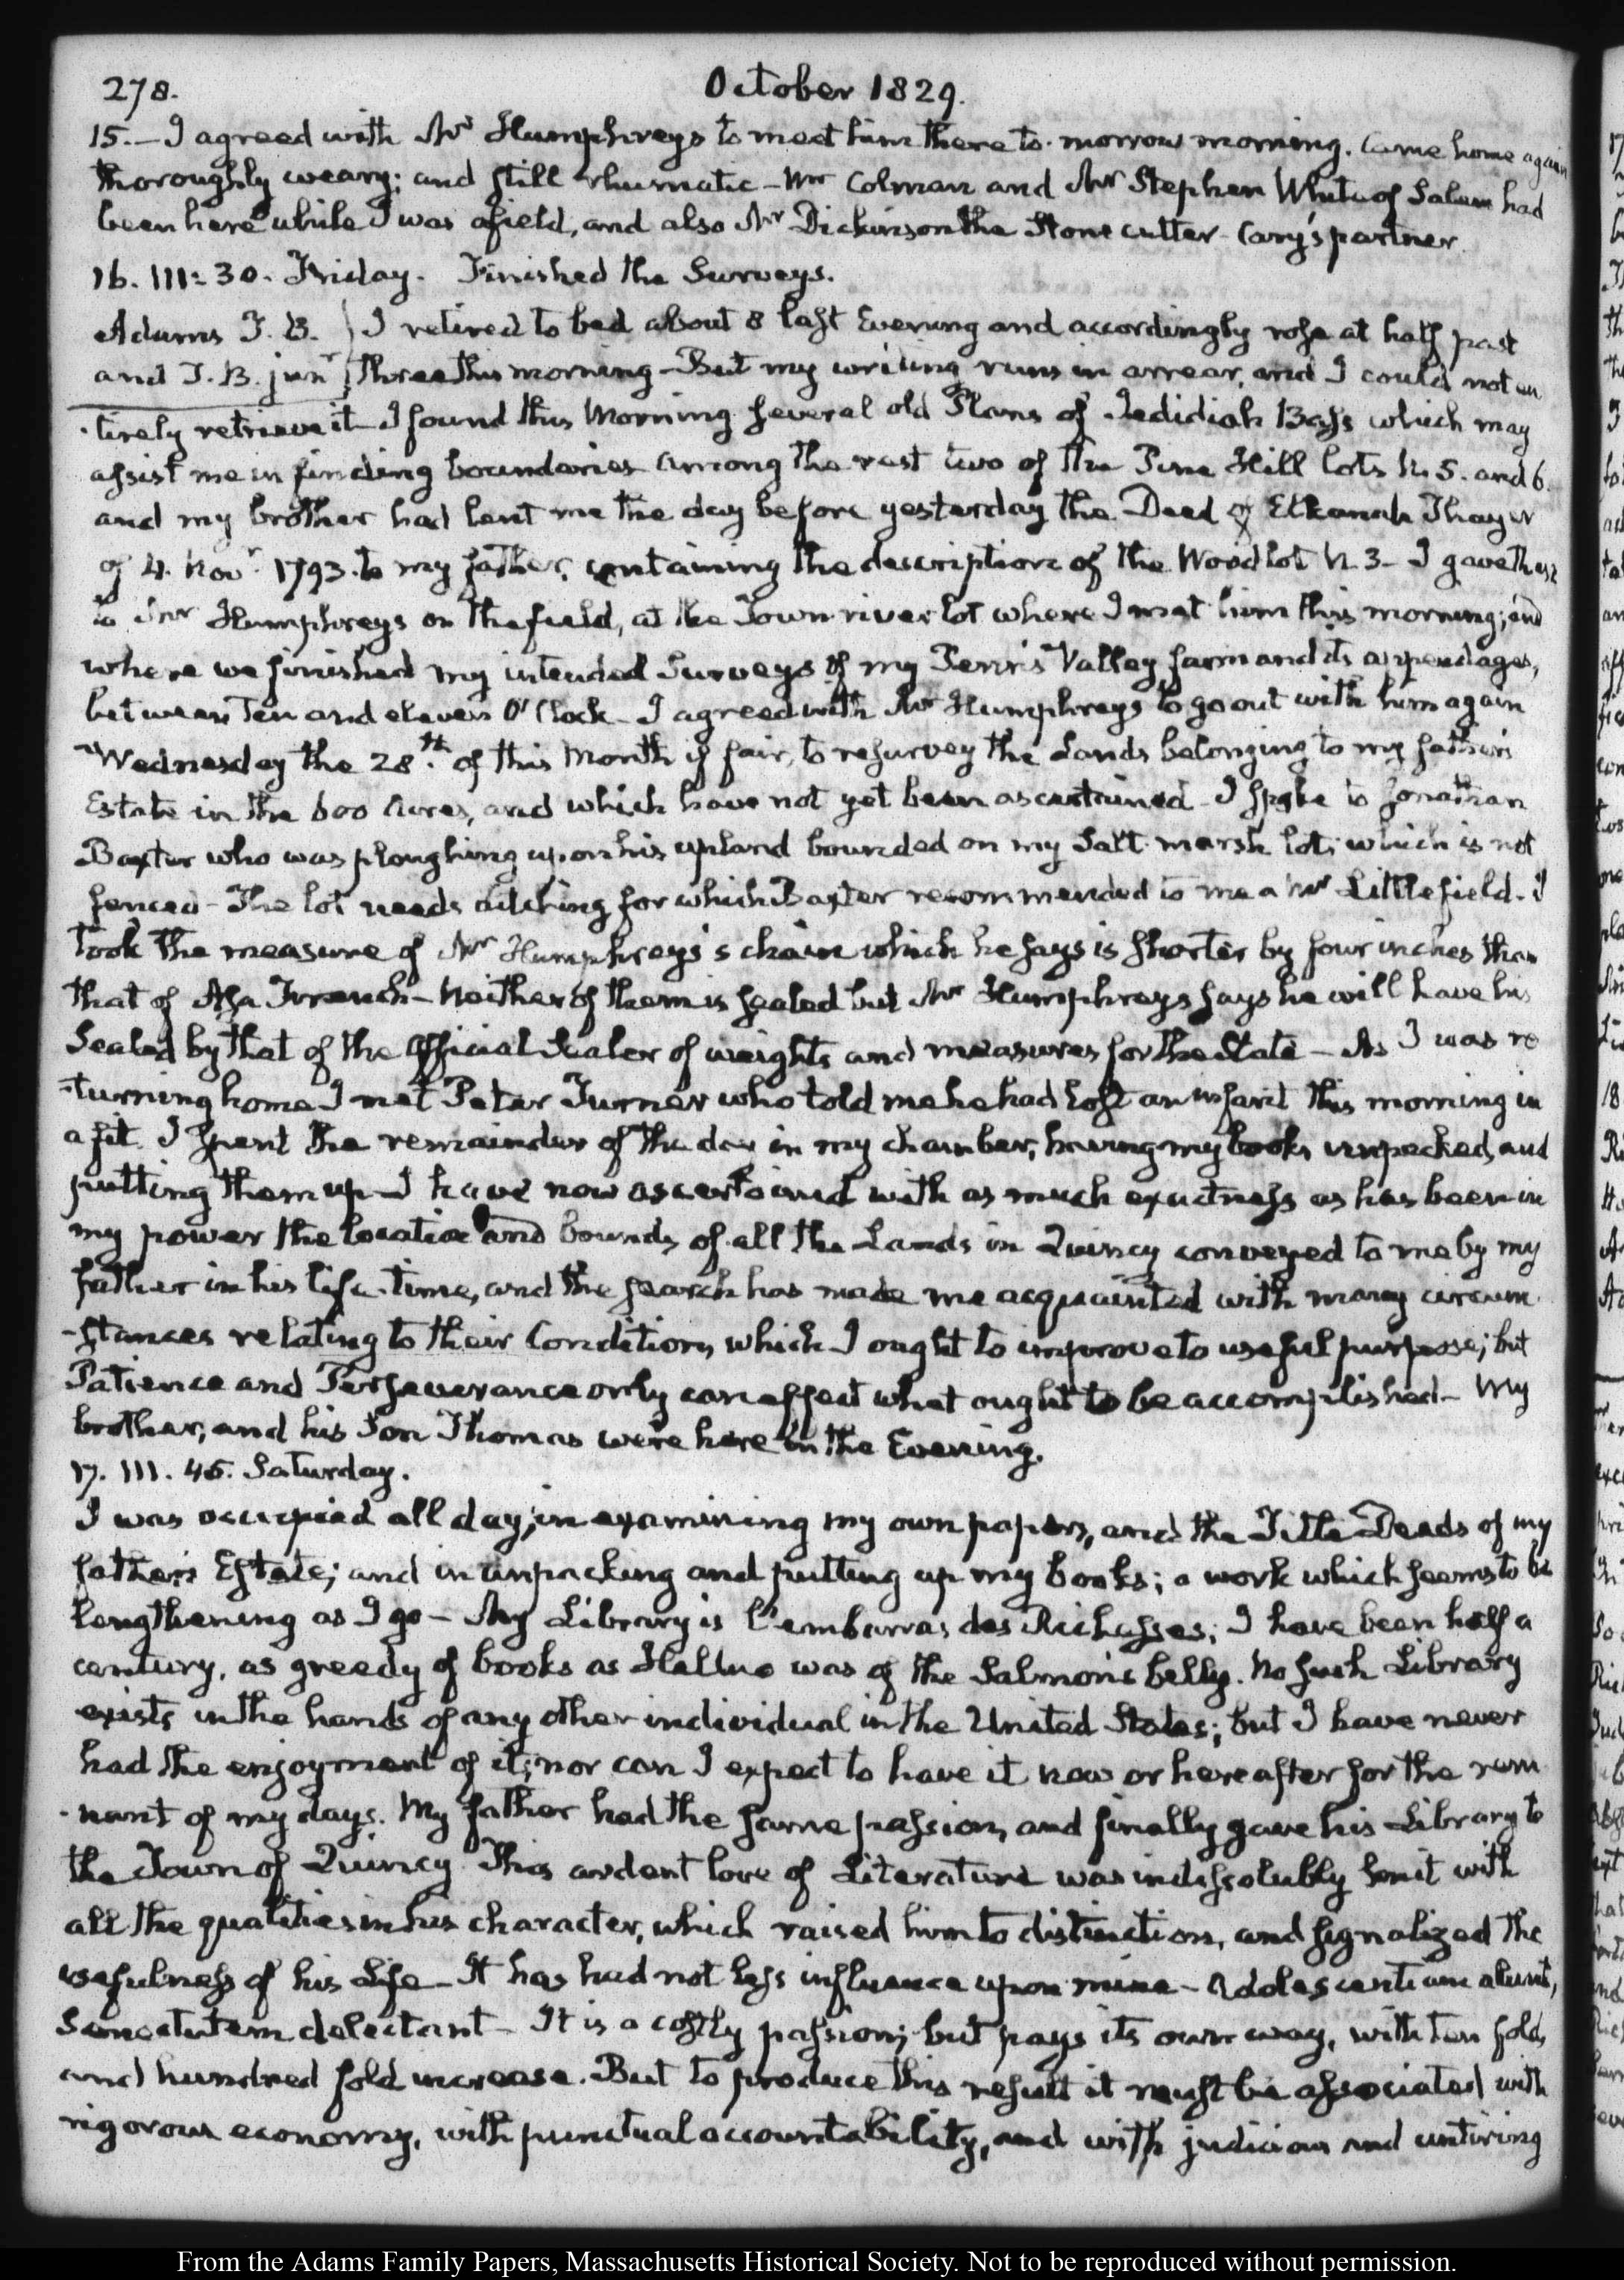 278.
October 1829.
15.— I agreed with Mr Humphreys to meet him there to-morrow morning. Came home again
thoroughly weary; and still rhumatic — Mr Colman and Mr Stephen White of Salem had
been here while I was afield, and also Mr Dickinson the Stone cutter — Cary's partner.
16. III:30. Friday. Finished the Surveys.
Adams T. B.
and T. B. junr
I retired to bed about 8 last Evening and accordingly rose at half past
three this morning — But my writing runs in arrear, and I could not en
-tirely retrieve it — I found this Morning several old Plans of Jedidiah Bass which may
assist me in finding boundaries among the rest two of the Pine Hill lots N. 5. and 6.
and my brother had lent me the day before yesterday the Deed of Elkanah Thayer
of 4. Novr 1793. to my father, containing the description of the Wood lot N. 3 — I gave these
to Mr Humphreys on the field, at the Town river lot where I met him this morning; and
where we finished my intended Surveys of my Penn's Valley farm and its appendages,
between Ten and eleven O'Clock — I agreed with Mr Humphreys to go out with him again
Wednesday the 28th of this Month if fair, to resurvey the Lands belonging to my father's
Estate in the 600 Acres, and which have not yet been ascertained — I spoke to Jonathan
Baxter who was ploughing upon his upland bounded on my Salt marsh lot; which is not
fenced — The lot needs ditching for which Baxter recommended to me a Mr Littlefield. I
took the measure of Mr Humphreys's chain which he says is shorter by four inches than
that of Asa French — Neither of them is sealed but Mr Humphreys says he will have his
Sealed by that of the Official Sealer of weights and measures for the State — As I was re
-turning home I met Peter Turner who told me he had lost an infant this morning in
a fit. I spent the remainder of the day in my chamber, having my books unpacked, and
putting them up — I have now ascertained with as much exactness as has been in
my power the location and bounds of all the Lands in Quincy conveyed to me by my
father in his life-time, and the search has made me acquainted with many circum
-stances relating to their Condition, which I ought to improve to useful purpose; but
Patience and Perseverance only can effect what ought to be accomplished — My
brother, and his Son Thomas were here in the Evening.
17. III. 45. Saturday.
I was occupied all day, in examining my own papers, and the Title Deeds of my
father's Estate; and in unpacking and putting up my books; a work which seems to be
lengthening as I go — My Library is l'embarras des Richesses; I have been half a
century, as greedy of books as was of the Salmon's belly. No such Library
exists in the hands of any other individual in the United States; but I have never
had the enjoyment of it; nor can I expect to have it now or hereafter for the rem
-nant of my days. My father had the same passion, and finally gave his Library to
the Town of Quincy. This ardent love of Literature was indissolubly knit with
all the qualities in his character, which raised him to distinction, and signalized the
usefulness of his Life — It has had not less influence upon mine — Adolescentiam alunt,
Senectutem delectant — It is a costly passion; but pays its own way, with ten fold,
and hundred fold increase. But to produce this result it must be associated with
rigorous economy, with punctual accountability, and with judicious and untiring
From the Adams Family Papers, Massachusetts Historical Society. Not to be reproduced without permission.